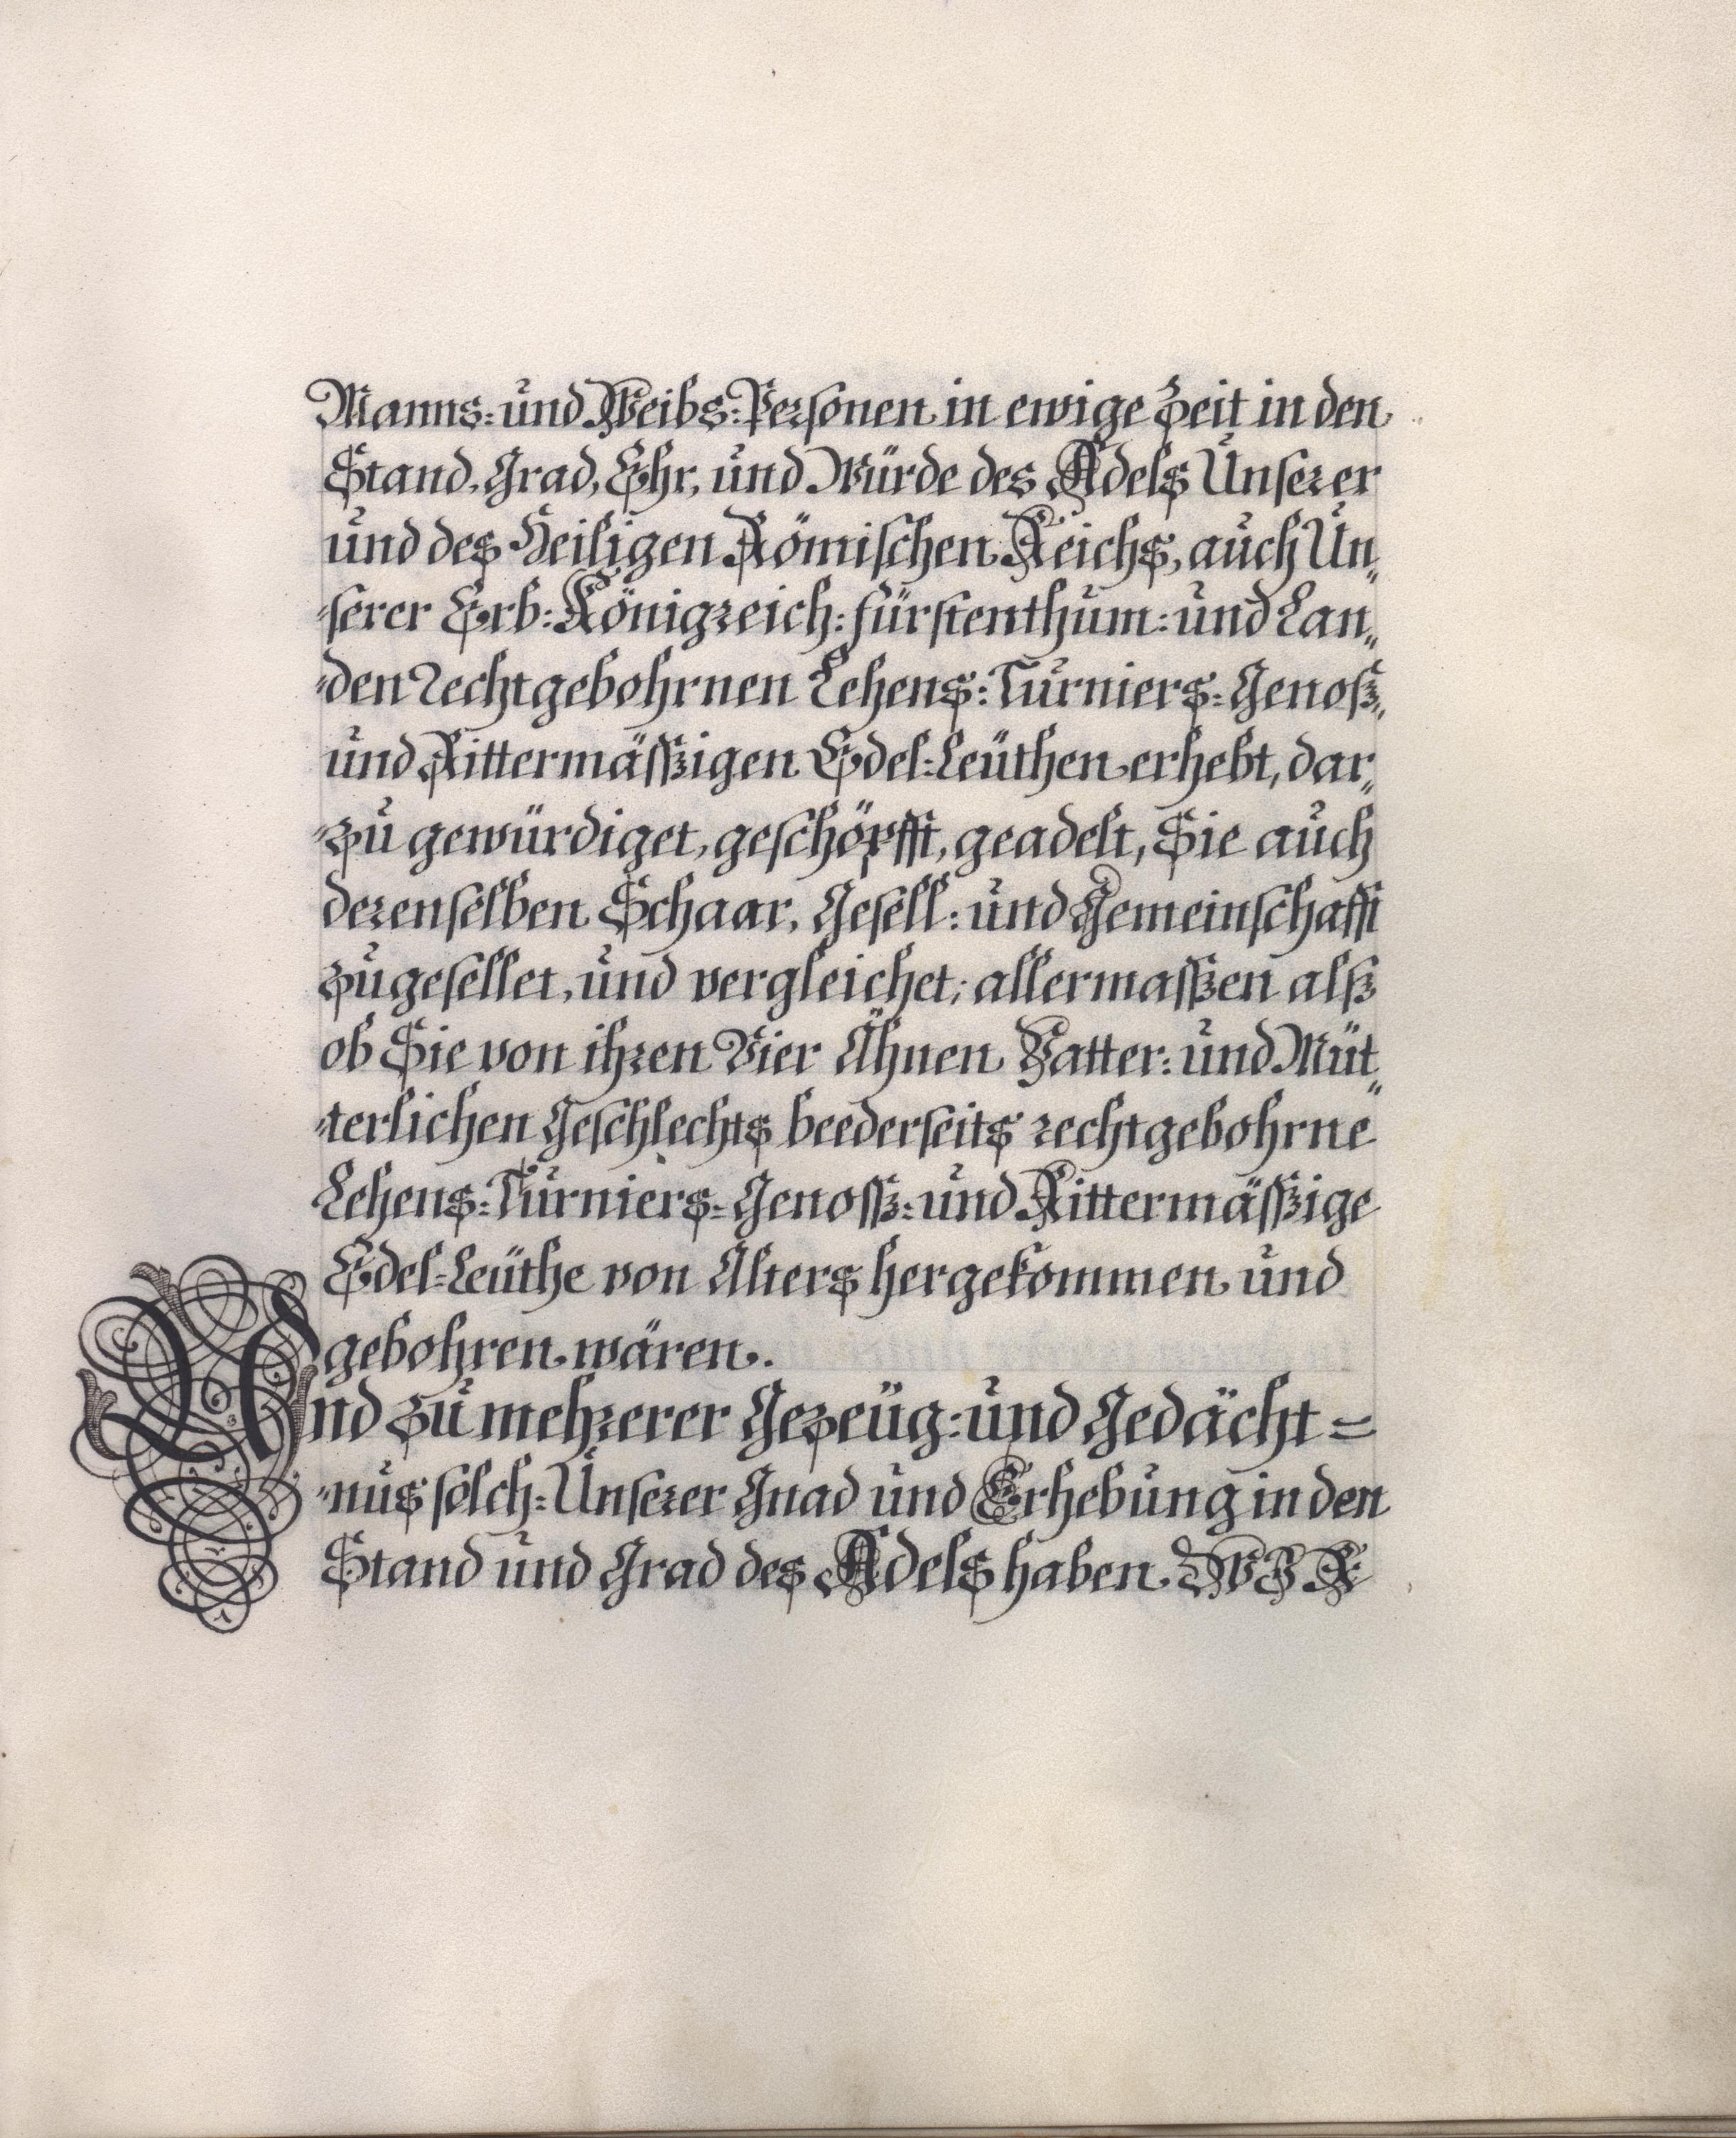 Manns- und Weibs-Personen in ewige Zeit in den
Stand, Grad, Ehr, und Würde des Adels Unserer
und des Heiligen Römischen Reichs, auch Un„
„serer Erb-Königreich-Fürstenthum- und Lan„
„den rechtgebohrnen Lehens-Turniers-Genoß„
und Rittermäßigen Edel-Leüthen erhebt, dar„
„zu gewürdiget, geschöpfft, geadelt, Sie auch
derenselben Schaar, Gesell- und Gemeinschafft
zugesellet, und vergleichet; allermaßen alß
ob Sie von ihren Vier Ahnen Vatter- und Müt„
„terlichen Geschlechts beederseits rechtgebohrne
Lehens-Turniers-Genoß- und Rittermäßige
Edel-Leüthe von Alters hergekommen und
gebohren wären.
Und zu mehrerer Gezeüg- und Gedächt=
„nus solch-Unserer Gnad und Erhebung in den
Stand und Grad des Adels haben WIR